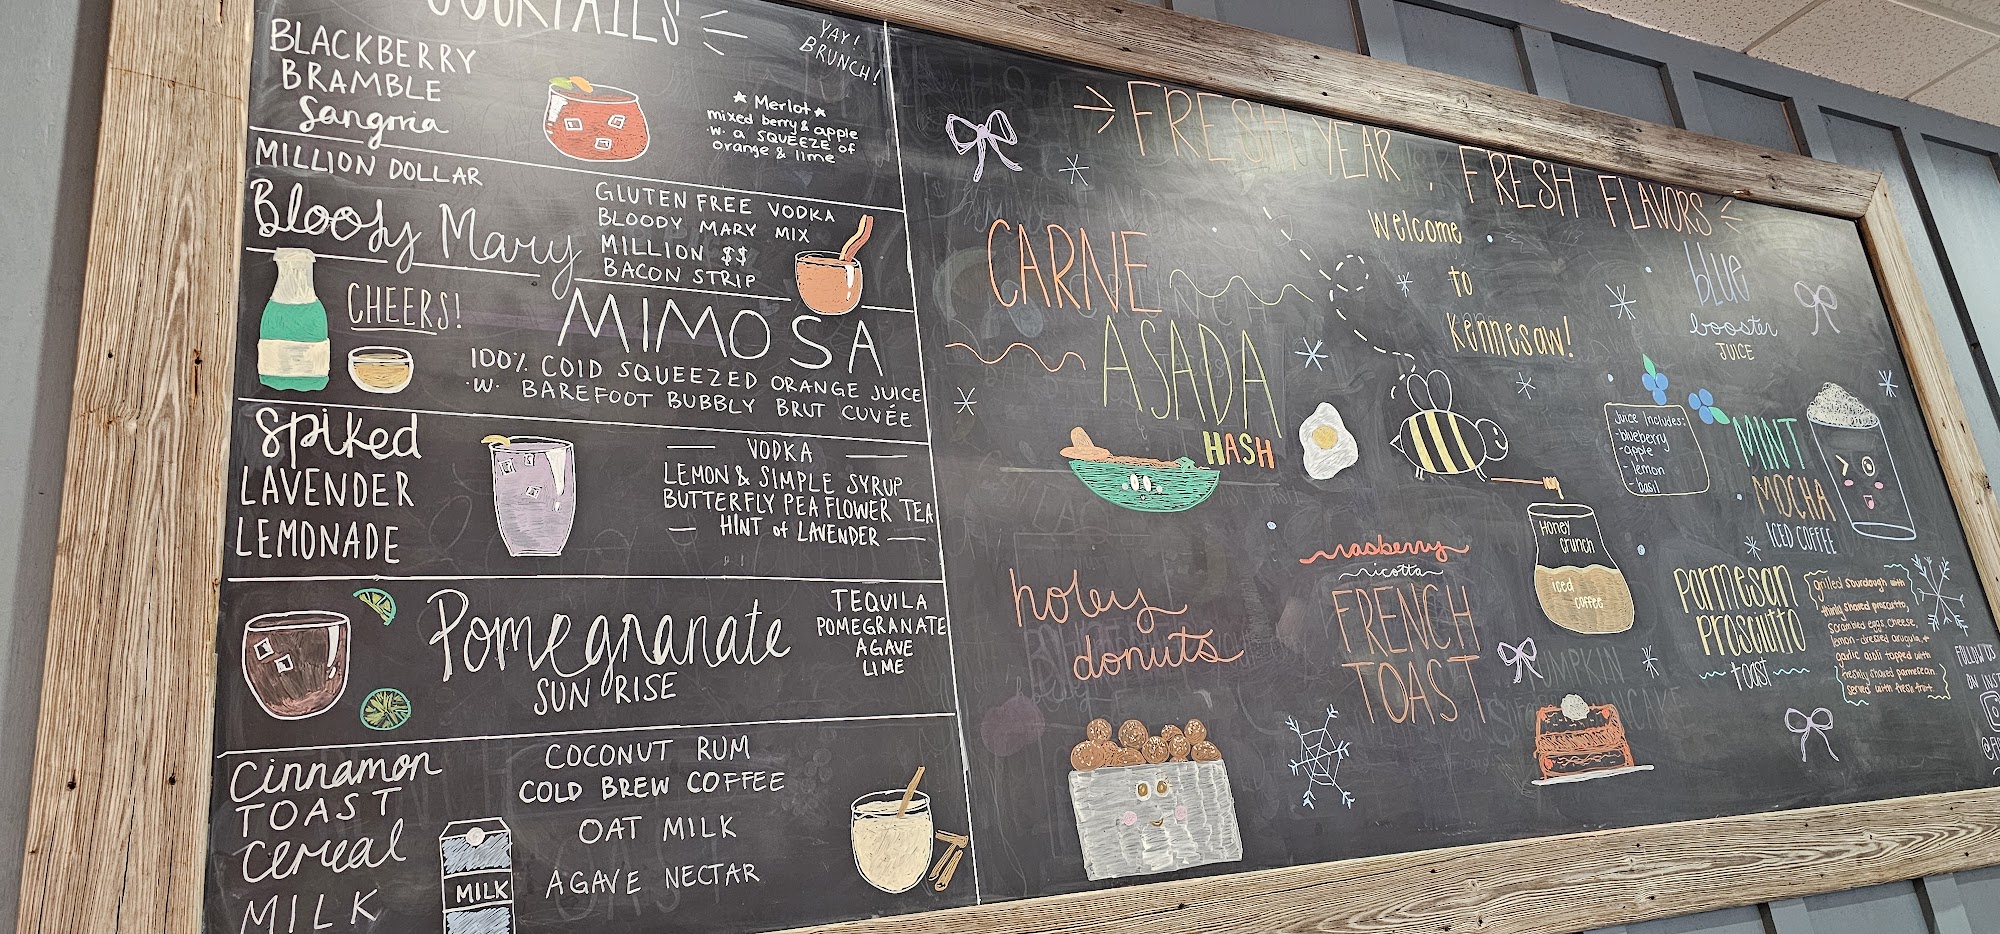 COCKTAILS
YAY!
BRUNCH!
BLACKBERRY
BRAMBLE
Sangria
★ Merlot ★
mixed berry & apple
w. a SQUEEZE of
orange & lime
MILLION DOLLAR
Bloody Mary
GLUTEN FREE VODKA
BLOODY MARY MIX
MILLION $$
BACON STRIP
CHEERS!
MIMOSA
100% COLD SQUEEZED ORANGE JUICE
·W· BAREFOOT BUBBLY BRUT CUVÉE
Spiked
LAVENDER
LEMONADE
VODKA
LEMON & SIMPLE SYRUP
BUTTERFLY PEA FLOWER TEA
HINT of LAVENDER
Pomegranate
SUN RISE
TEQUILA
POMEGRANATE
AGAVE
LIME
Cinnamon
TOAST
Cereal
MILK
MILK
COCONUT RUM
COLD BREW COFFEE
OAT MILK
AGAVE NECTAR
→ FRESH YEAR, FRESH FLAVORS
Welcome
to
Kennesaw!
CARNE
ASADA
HASH
blue
booster
JUICE
Juice Includes:
-blueberry
-apple
-lemon
-basil
MINT
MOCHA
ICED COFFEE
Honey
crunch
iced
coffee
holey
donuts
rasberry
ricotta
FRENCH
TOAST
PUMPKIN
PANCAKE
parmesan
prosciutto
toast
grilled sourdough with
thinly shaved proscuitto,
scrambled eggs, cheese,
lemon-dressed arugula, +
garlic aioli topped with
freshly shaved parmesean
served with fresh fruit
FOLLOW US
ON INST